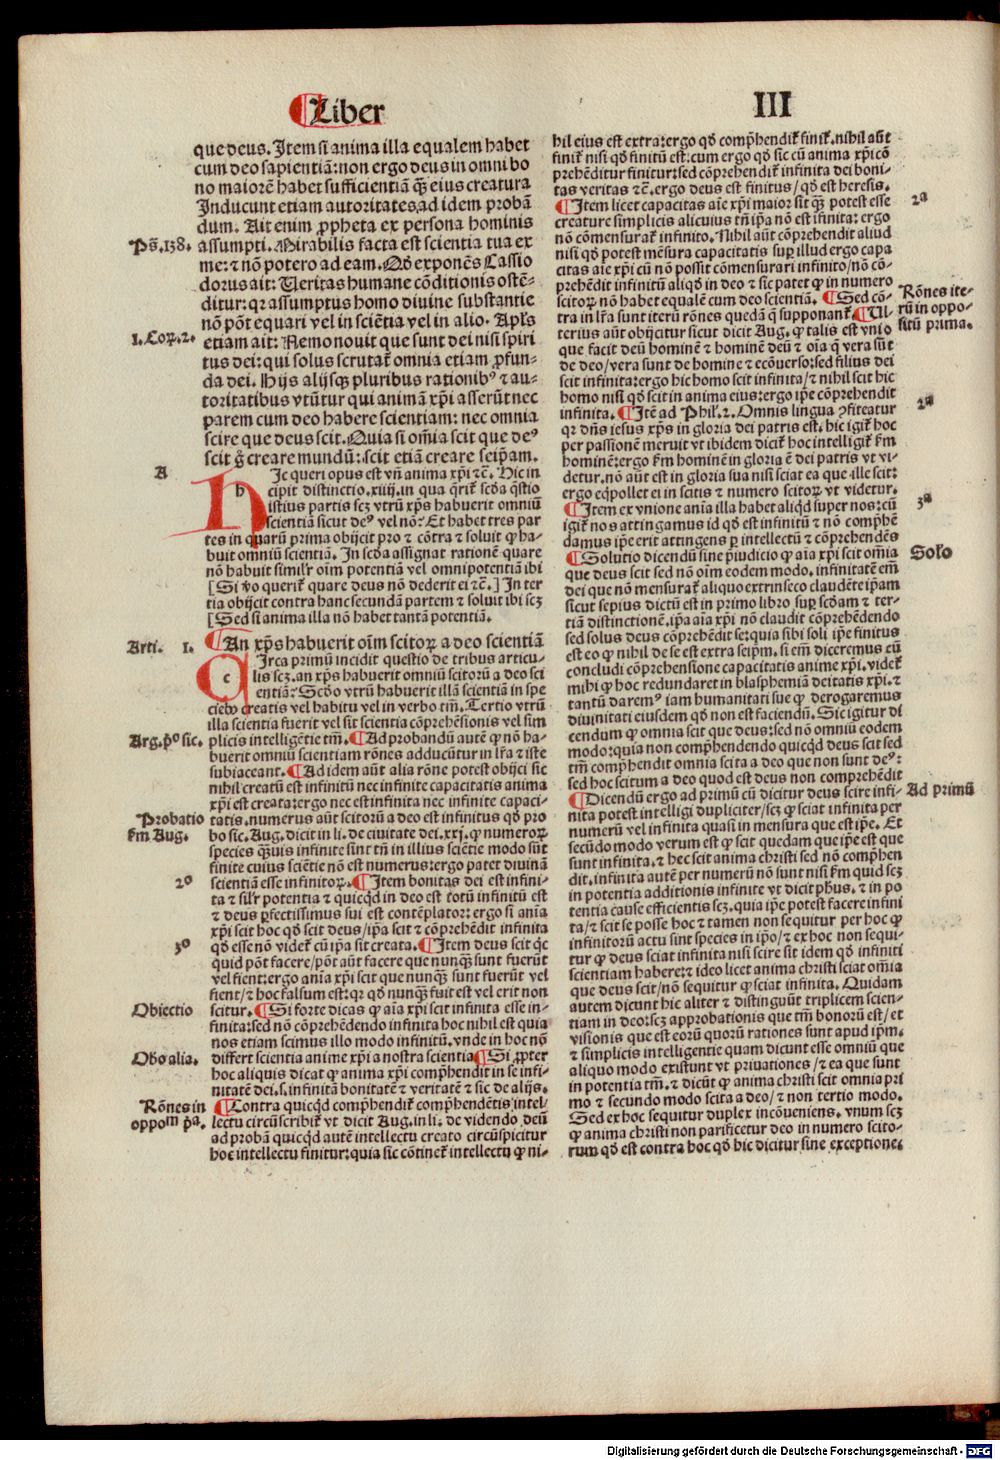 Liber
III
que deus. Item si anima illa equalem habet
cum deo sapientiā: non ergo deus in omni bo
no maiorē habet sufficientiā q̄ȝ eius creatura
Inducunt etiam autoritates ad idem probā
dum. Ait enim ꝓpheta ex persona hominis
Ps̄. 138.
assumpti. Mirabilis facta est scientia tua ex
me: ⁊ nō potero ad eam. Qd̄ exponēs Cassio
dorus ait: Ueritas humane cōditionis ostē-
ditur: qꝛ assumptus homo diuine substantie
nō pōt equari vel in sciētia vel in alio. Apl's
1. Coꝝ. 2.
etiam ait: Nemo nouit que sunt dei nisi spiri
tus dei: qui solus scrutat᷑ omnia etiam ꝓfun-
da dei. Hijs alijsqꝫ pluribus rationib⁹ ⁊ au-
toritatibus vtūtur qui animā xp̄i asserūt nec
parem cum deo habere scientiam: nec omnia
scire que deus scit. Quia si om̄ia scit que de⁹
scit ḡ creare mundū: scit etiā creare seip̄am.
A
h
Ic queri opus est vn̄ anima xp̄i ⁊c̄. Hic in
cipit distinctio .xiiij. in qua q̄rit᷑ scd̄a q̄stio
istius partis scꝫ vtrū xp̄s habuerit omniū
scientiā sicut de⁹ vel nō: Et habet tres par
tes in quarū prima obijcit pro ⁊ cōtra ⁊ soluit ꝙ ha-
buit omniū scientiā. In scd̄a assignat rationē quare
nō habuit simil'r oīm potentiā vel omnipotentiā ibi
[Si v̄o querit᷑ quare deus nō dederit ei ⁊c̄.] In ter
tia obijcit contra hanc secundā partem ⁊ soluit ibi scꝫ
[Sed si anima illa nō habet tantā potentiā.
Arti. 1.
An xp̄s habuerit oīm scitoꝝ a deo scientiā
c
Irca primū incidit questio de tribus articu-
lis scꝫ. an xp̄s habuerit omniū scitorū a deo sci
entiā: Scd̄o vtrū habuerit illā scientiā in spe
ciebꝰ creatis vel habitu vel in verbo tm̄. Tertio vtrū
illa scientia fuerit vel sit scientia cōprehēsionis vel sim
Arg. p̄o sic.
plicis intelligētie tm̄. Ad probandū autē ꝙ nō ha-
buerit omniū scientiam rōnes adducūtur in lr̄a ⁊ iste
subiaceant. Ad idem aūt alia rōne potest obijci sic
nihil creatū est infinitū nec infinite capacitatis anima
xp̄i est creata: ergo nec est infinita nec infinite capaci-
Probatio
fm̄ Aug.
tatis. numerus aūt scitorū a deo est infinitus qd̄ pro
bo sic. Aug. dicit in li. de ciuitate dei .xxj. ꝙ numeroꝝ
species q̄ȝuis infinite sunt tn̄ in illius sciētie modo sūt
finite cuius sciētie nō est numerus: ergo patet diuinā
2º
scientiā esse infinitoꝝ. Item bonitas dei est infini-
ta ⁊ sil'r potentia ⁊ quicqd̄ in deo est totū infinitū est
⁊ deus ꝑfectissimus sui est contēplator: ergo si anīa
xp̄i scit hoc qd̄ scit deus / ip̄a scit ⁊ cōprehēdit infinita
3º
qd̄ esse nō videt᷑ cū ip̄a sit creata. Item deus scit qc̄
quid pōt facere / pōt aūt facere que nunq̄ȝ sunt fuerūt
vel fient: ergo anīa xp̄i scit que nunq̄ȝ sunt fuerūt vel
fient / ⁊ hoc falsum est: qꝛ qd̄ nunq̄ȝ fuit est vel erit non
Obiectio
scitur. Si forte dicas ꝙ aīa xp̄i scit infinita esse in-
finita: sed nō cōprehēdendo infinita hoc nihil est quia
nos etiam scimus illo modo infinitū. vnde in hoc nō
Obo alia.
differt scientia anime xp̄i a nostra scientia. Si ꝓpter
hoc aliquis dicat ꝙ anima xp̄i comp̄hendit in se infi-
nitatē dei. s. infinitā bonitatē ⁊ veritatē ⁊ sic de alijs.
Rōnes in
oppom p̄a.
Contra quicqd̄ comp̄hendit᷑ comp̄hendētis intel-
lectu circūscribit᷑ vt dicit Aug. in li. de videndo deū
ad probā quicqd̄ autē intellectu creato circūspicitur
hoc intellectu finitur: quia sic cōtinet᷑ intellectu ꝙ ni-
hil eius est extra: ergo qd̄ comp̄hendit᷑ finit᷑. nihil aūt
finit᷑ nisi qd̄ finitū est: cum ergo qd̄ sic cū anima xp̄i cō
prehēditur finitur: sed cōprehendit᷑ infinita dei boni-
tas veritas ⁊c̄. ergo deus est finitus / qd̄ est heresis.
2ª
Item licet capacitas aīe xp̄i maior sit q̄ȝ potest esse
creature simplicis alicuius tn̄ ip̄a nō est ifinita: ergo
nō cōmensurat᷑ infinito. Nihil aūt cōprehendit aliud
nisi qd̄ potest mēsura capacitatis suꝑ illud ergo capa
citas aīe xp̄i cū nō possit cōmensurari infinito / nō cō-
prehēdit infinitū aliqd̄ in deo ⁊ sic patet ꝙ in numero
scitoꝝ nō habet equalē cum deo scientiā. Sed cō-
Rōnes ite-
rū in oppo-
sitū prima.
tra in lr̄a sunt iterū rōnes quedā q̄ supponant᷑. Ul-
terius aūt obijcitur sicut dicit Aug. ꝙ talis est vnio
que facit deū hominē ⁊ hominē deū ⁊ oīa q̄ vera sūt
de deo / vera sunt de homine ⁊ ecōuerso: sed filius dei
scit infinita: ergo hic homo scit infinita / ⁊ nihil scit hic
homo nisi qd̄ scit in anima eius: ergo ip̄e cōprehendit
2ª
infinita. Itē ad Phil'. 2. Omnis lingua ꝯfiteatur
qꝛ dn̄s iesus xp̄s in gloria dei patris est. hic igit᷑ hoc
per passionē meruit vt ibidem dicit᷑ hoc intelligit᷑ fm̄
hominē: ergo fm̄ hominē in gloria ē dei patris vt vi-
detur. nō aūt est in gloria sua nisi sciat ea que ille scit:
ergo eqd̄pollet ei in scitis ⁊ numero scitoꝝ vt videtur.
3ª
Item ex vnione anīa illa habet aliqd̄ super nos: cū
igit᷑ nos attingamus id qd̄ est infinitū ⁊ nō comp̄hē
damus ip̄e erit attingens ꝑ intellectū ⁊ cōprehendēs
Sol'o
Solutio dicendū sine p̄iudicio ꝙ aīa xp̄i scit om̄ia
que deus scit sed nō oīm eodem modo. infinitatē em̄
dei que nō mensurat᷑ aliquo extrinseco claudēte ip̄am
sicut sepius dictū est in primo libro suꝑ scd̄am ⁊ ter-
tiā distinctionē. ip̄a aīa xp̄i nō claudit cōprehēdendo
sed solus deus cōprehēdit se: quia sibi soli ip̄e finitus
est eo ꝙ nihil de se est extra seip̄m. si em̄ diceremus eū
concludi cōprehensione capacitatis anime xp̄i. videt᷑
mihi ꝙ hoc redundaret in blasphemiā deitatis xp̄i. ⁊
tantū darem⁹ iam humanitati sue ꝙ derogaremus
diuinitati eiusdem qd̄ non est faciendū. Sic igitur di
cendum ꝙ omnia scit que deus: sed nō omniū eodem
modo: quia non comp̄hendendo quicqd̄ deus scit sed
tm̄ comp̄hendit omnia scita a deo que non sunt de⁹:
sed hoc scitum a deo quod est deus non comprehēdit
Ad primū
Dicendū ergo ad primū cū dicitur deus scire infi-
nita potest intelligi dupliciter / scꝫ ꝙ sciat infinita per
numerū vel infinita quasi in mensura que est ip̄e. Et
secūdo modo verum est ꝙ scit quedam que ip̄e est que
sunt infinita. ⁊ hec scit anima christi sed nō comp̄hen
dit. infinita autē per numerū nō sunt nisi fm̄ quid scꝫ
in potentia additionis infinite vt dicit ph̄us. ⁊ in po
tentia cause efficientis scꝫ. quia ip̄e potest facere infini
ta / ⁊ scit se posse hoc ⁊ tamen non sequitur per hoc ꝙ
infinitorū actu sint species in ip̄o / ⁊ ex hoc non sequi-
tur ꝙ deus sciat infinita nisi scire sit idem qd̄ infiniti
scientiam habere: ⁊ ideo licet anima christi sciat om̄ia
que deus scit / nō sequitur ꝙ sciat infinita. Quidam
autem dicunt hic aliter ⁊ distinguūt triplicem scien-
tiam in deo: scꝫ approbationis que tm̄ bonorū est / et
visionis que est eorū quorū rationes sunt apud ip̄m.
⁊ simplicis intelligentie quam dicunt esse omniū que
aliquo modo existunt vt priuationes / ⁊ ea que sunt
in potentia tm̄. ⁊ dicūt ꝙ anima christi scit omnia pri
mo ⁊ secundo modo scita a deo / ⁊ non tertio modo.
Sed ex hoc sequitur duplex incōueniens. vnum scꝫ
ꝙ anima christi non parificetur deo in numero scito-
rum qd̄ est contra hoc qd̄ hic dicitur sine exceptione.
Digitalisierung gefördert durch die Deutsche Forschungsgemeinschaft - DFG